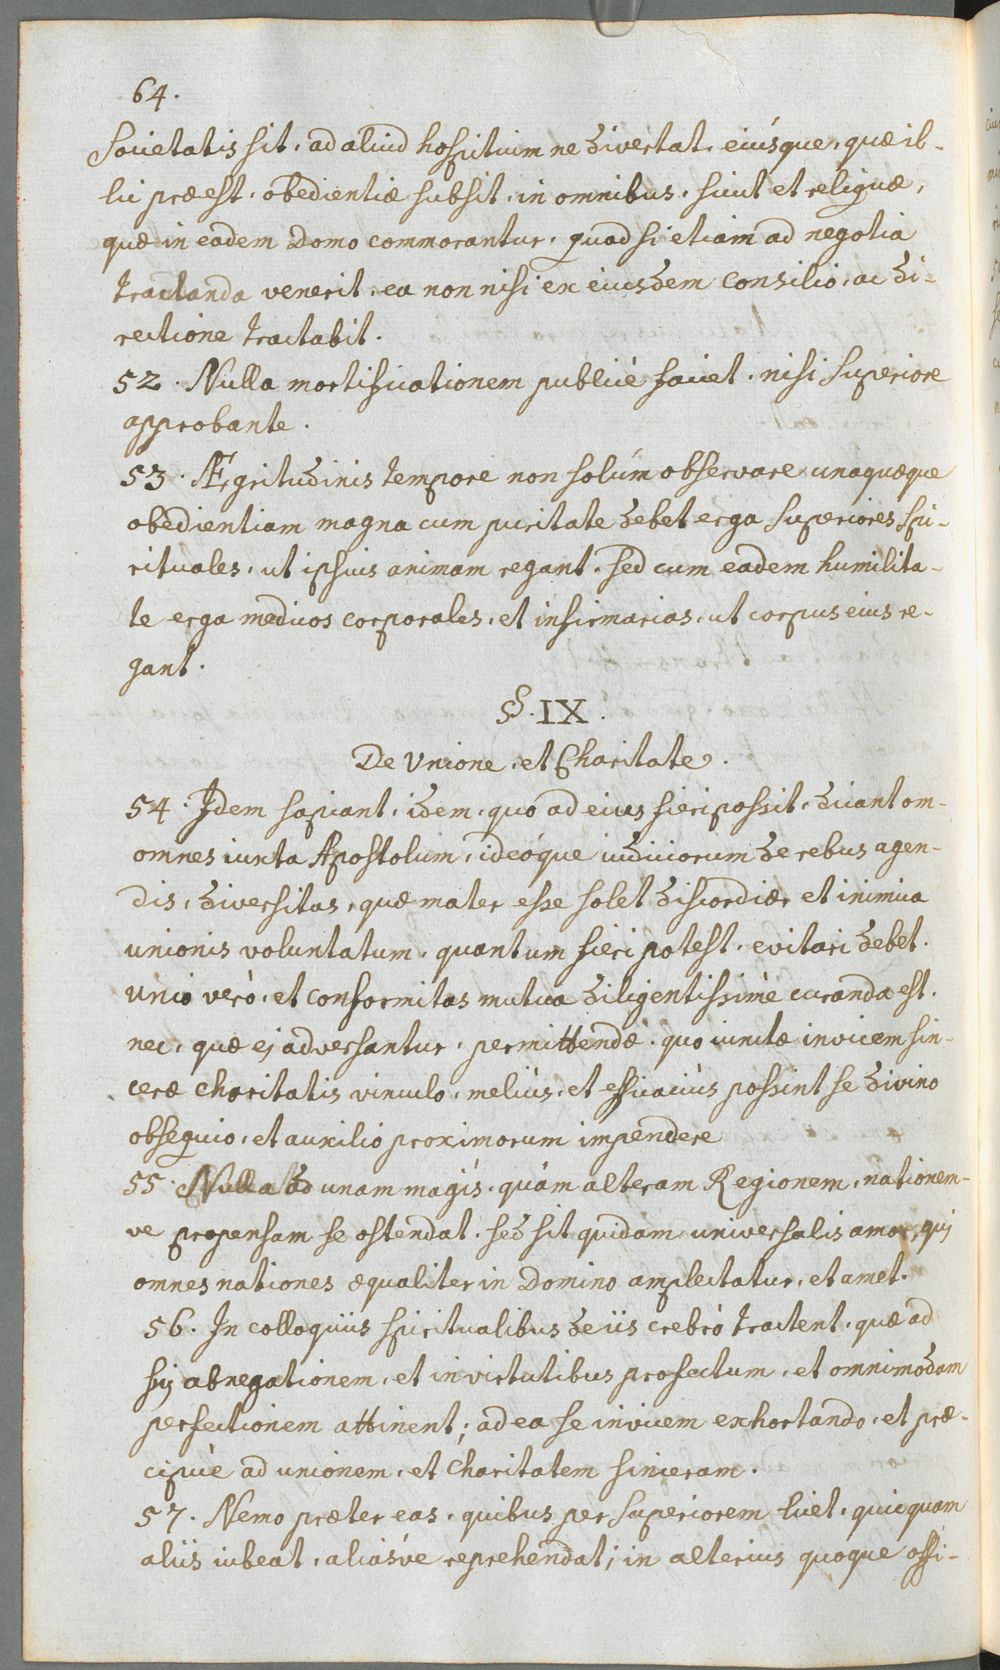 64.
Societatis sit, ad aliud hospitium ne divertat, eiúsque, quæ il-
lic præest, obedientiæ subsit, in omnibus, sicut et reliquæ,
quæ in eadem Domo commorantur. quod si etiam ad negotia
tractanda venerit, ea non nisi ex eiusdem Consilio, ac di-
rectione tractabit.
52. Nulla mortificationem publicè faciet, nisi Superiore
approbante.
53. Ægritudinis tempore non solúm observare unaquæque
obedientiam magna cum puritate debet erga Superiores Spi-
rituales, ut ipsius animam regant, sed cum eadem humilita-
te erga medicos corporales, et infirmarias, ut corpus eius re-
gant.
§. IX.
De Unione, et Charitate.
54. Idem sapiant, idem, quo ad eius fieri possit, dicant om-
omnes iuxta Apostolum, ideóque iudiciorum de rebus agen-
dis, diversitas, quæ mater esse solet discordiæ, et inimica
unionis voluntatum, quantum fieri potest, evitari debet.
Unio verò, et conformitas mutua diligentissimè curanda est,
nec, quæ ej adversantur, permittendæ. quo iunctæ invicem sin-
ceræ Charitatis vinculo, meliùs, et efficaciùs possint se divino
obsequio, et auxilio proximorum impendere
55. Nulla ad unam magìs, quàm alteram Regionem, nationem-
ve propensam se ostendat, sed sit quidam universalis amor, qui
omnes nationes æqualiter in Domino amplectatur, et amet.
56. In colloquiis spiritualibus de iis crebrò tractent, quæ ad
sij abnegationem, et in virtutibus profectum, et omnimodam
perfectionem attinent; ad ea se invicem exhortando, et præ-
cipuè ad unionem, et Charitatem sinceram.
57. Nemo præter eas, quibus per Superiorem licet, quicquam
aliis iubeat, aliásve reprehendat; in alterius quoque offi-